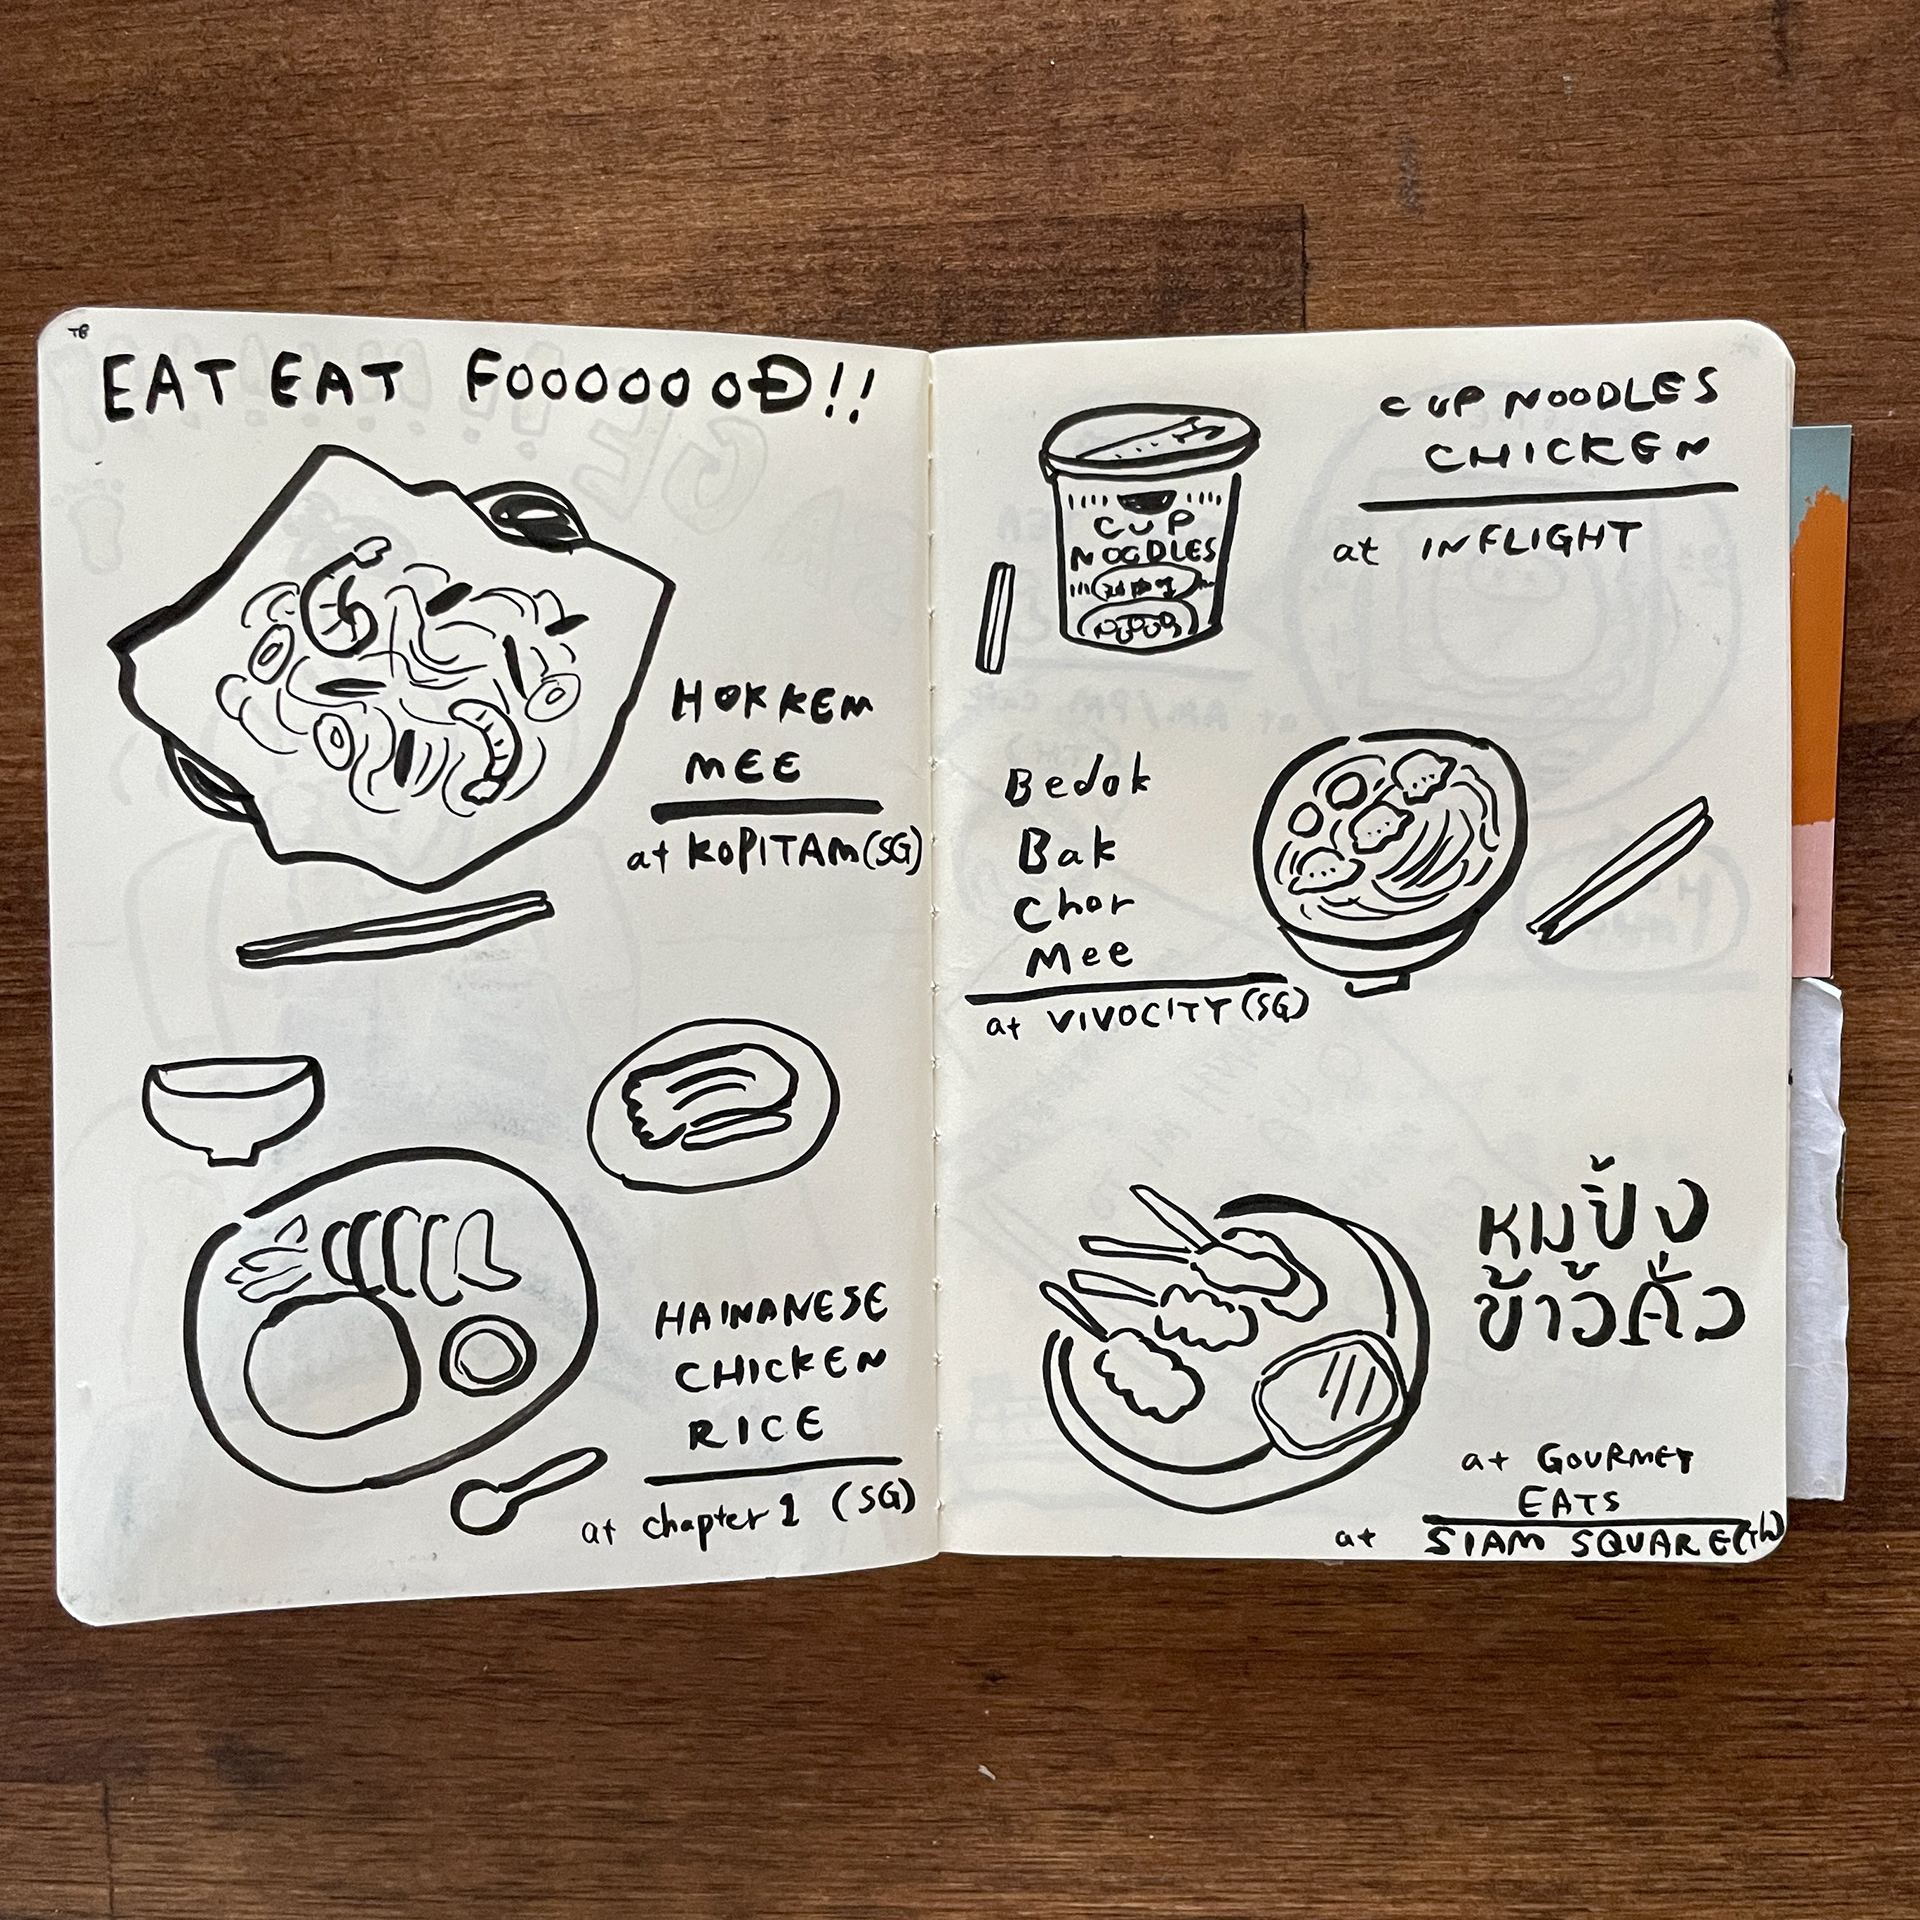 TB
EAT EAT FOOOOOOD!!
HOKKEM
MEE
at KOPITAM (SG)
HAINANESE
CHICKEN
RICE
at chapter 1 (SG)
CUP NOODLES
CHICKEN
at INFLIGHT
CUP
NOODLES
Bedok
Bak
Chor
Mee
at VIVOCITY (SG)
หมูปิ้ง
ข้าวคั่ว
at GOURMET
EATS
at SIAM SQUARE (TH)